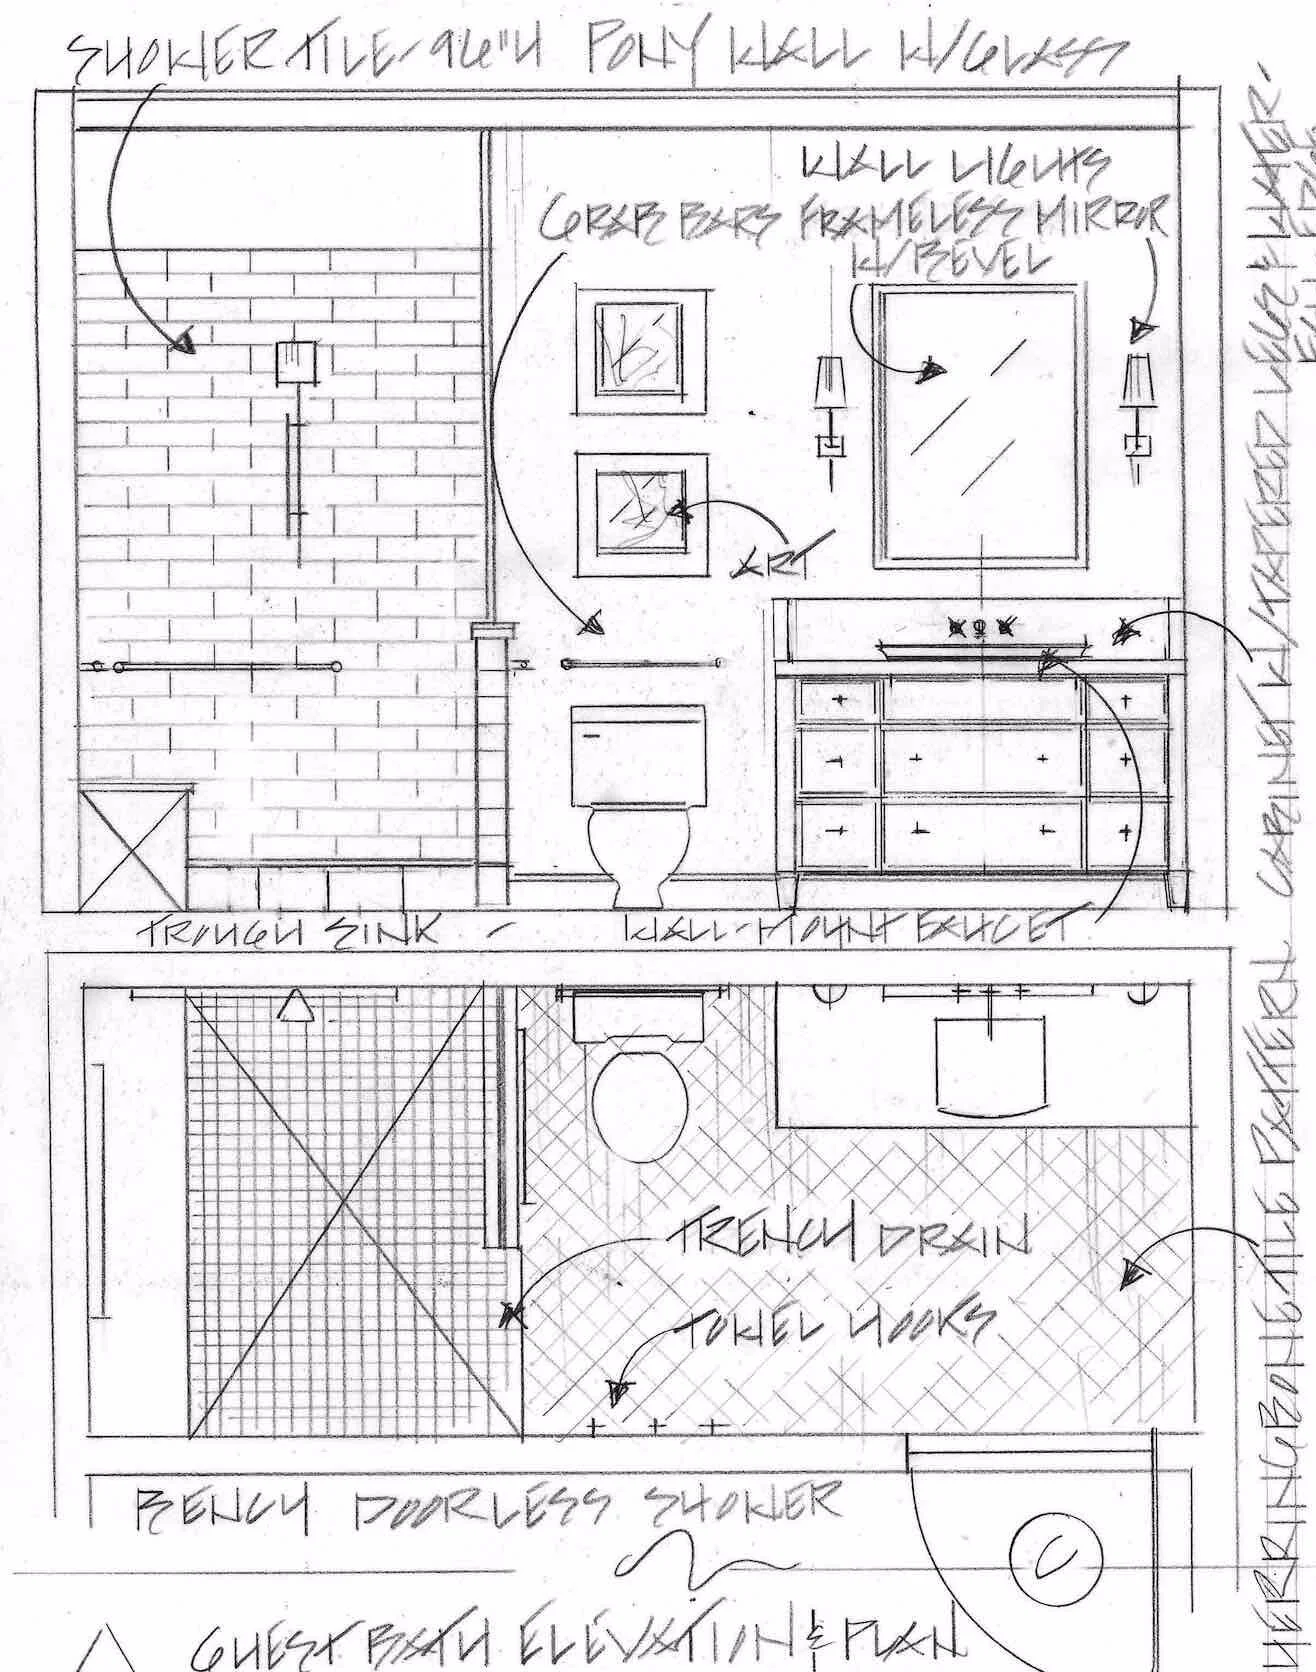 SHOWER TILE - 96"H PONY WALL W/GLASS
WALL LIGHTS
GRAB BARS FRAMELESS MIRROR
W/BEVEL
ART
TROUGH SINK - WALL-MOUNT FAUCET
TRENCH DRAIN
TOWEL HOOKS
BENCH DOORLESS SHOWER
C
GUEST BATH ELEVATION & PLAN
HERRINGBONE TILE PATTERN CABINET W/TAPERED LEGS &